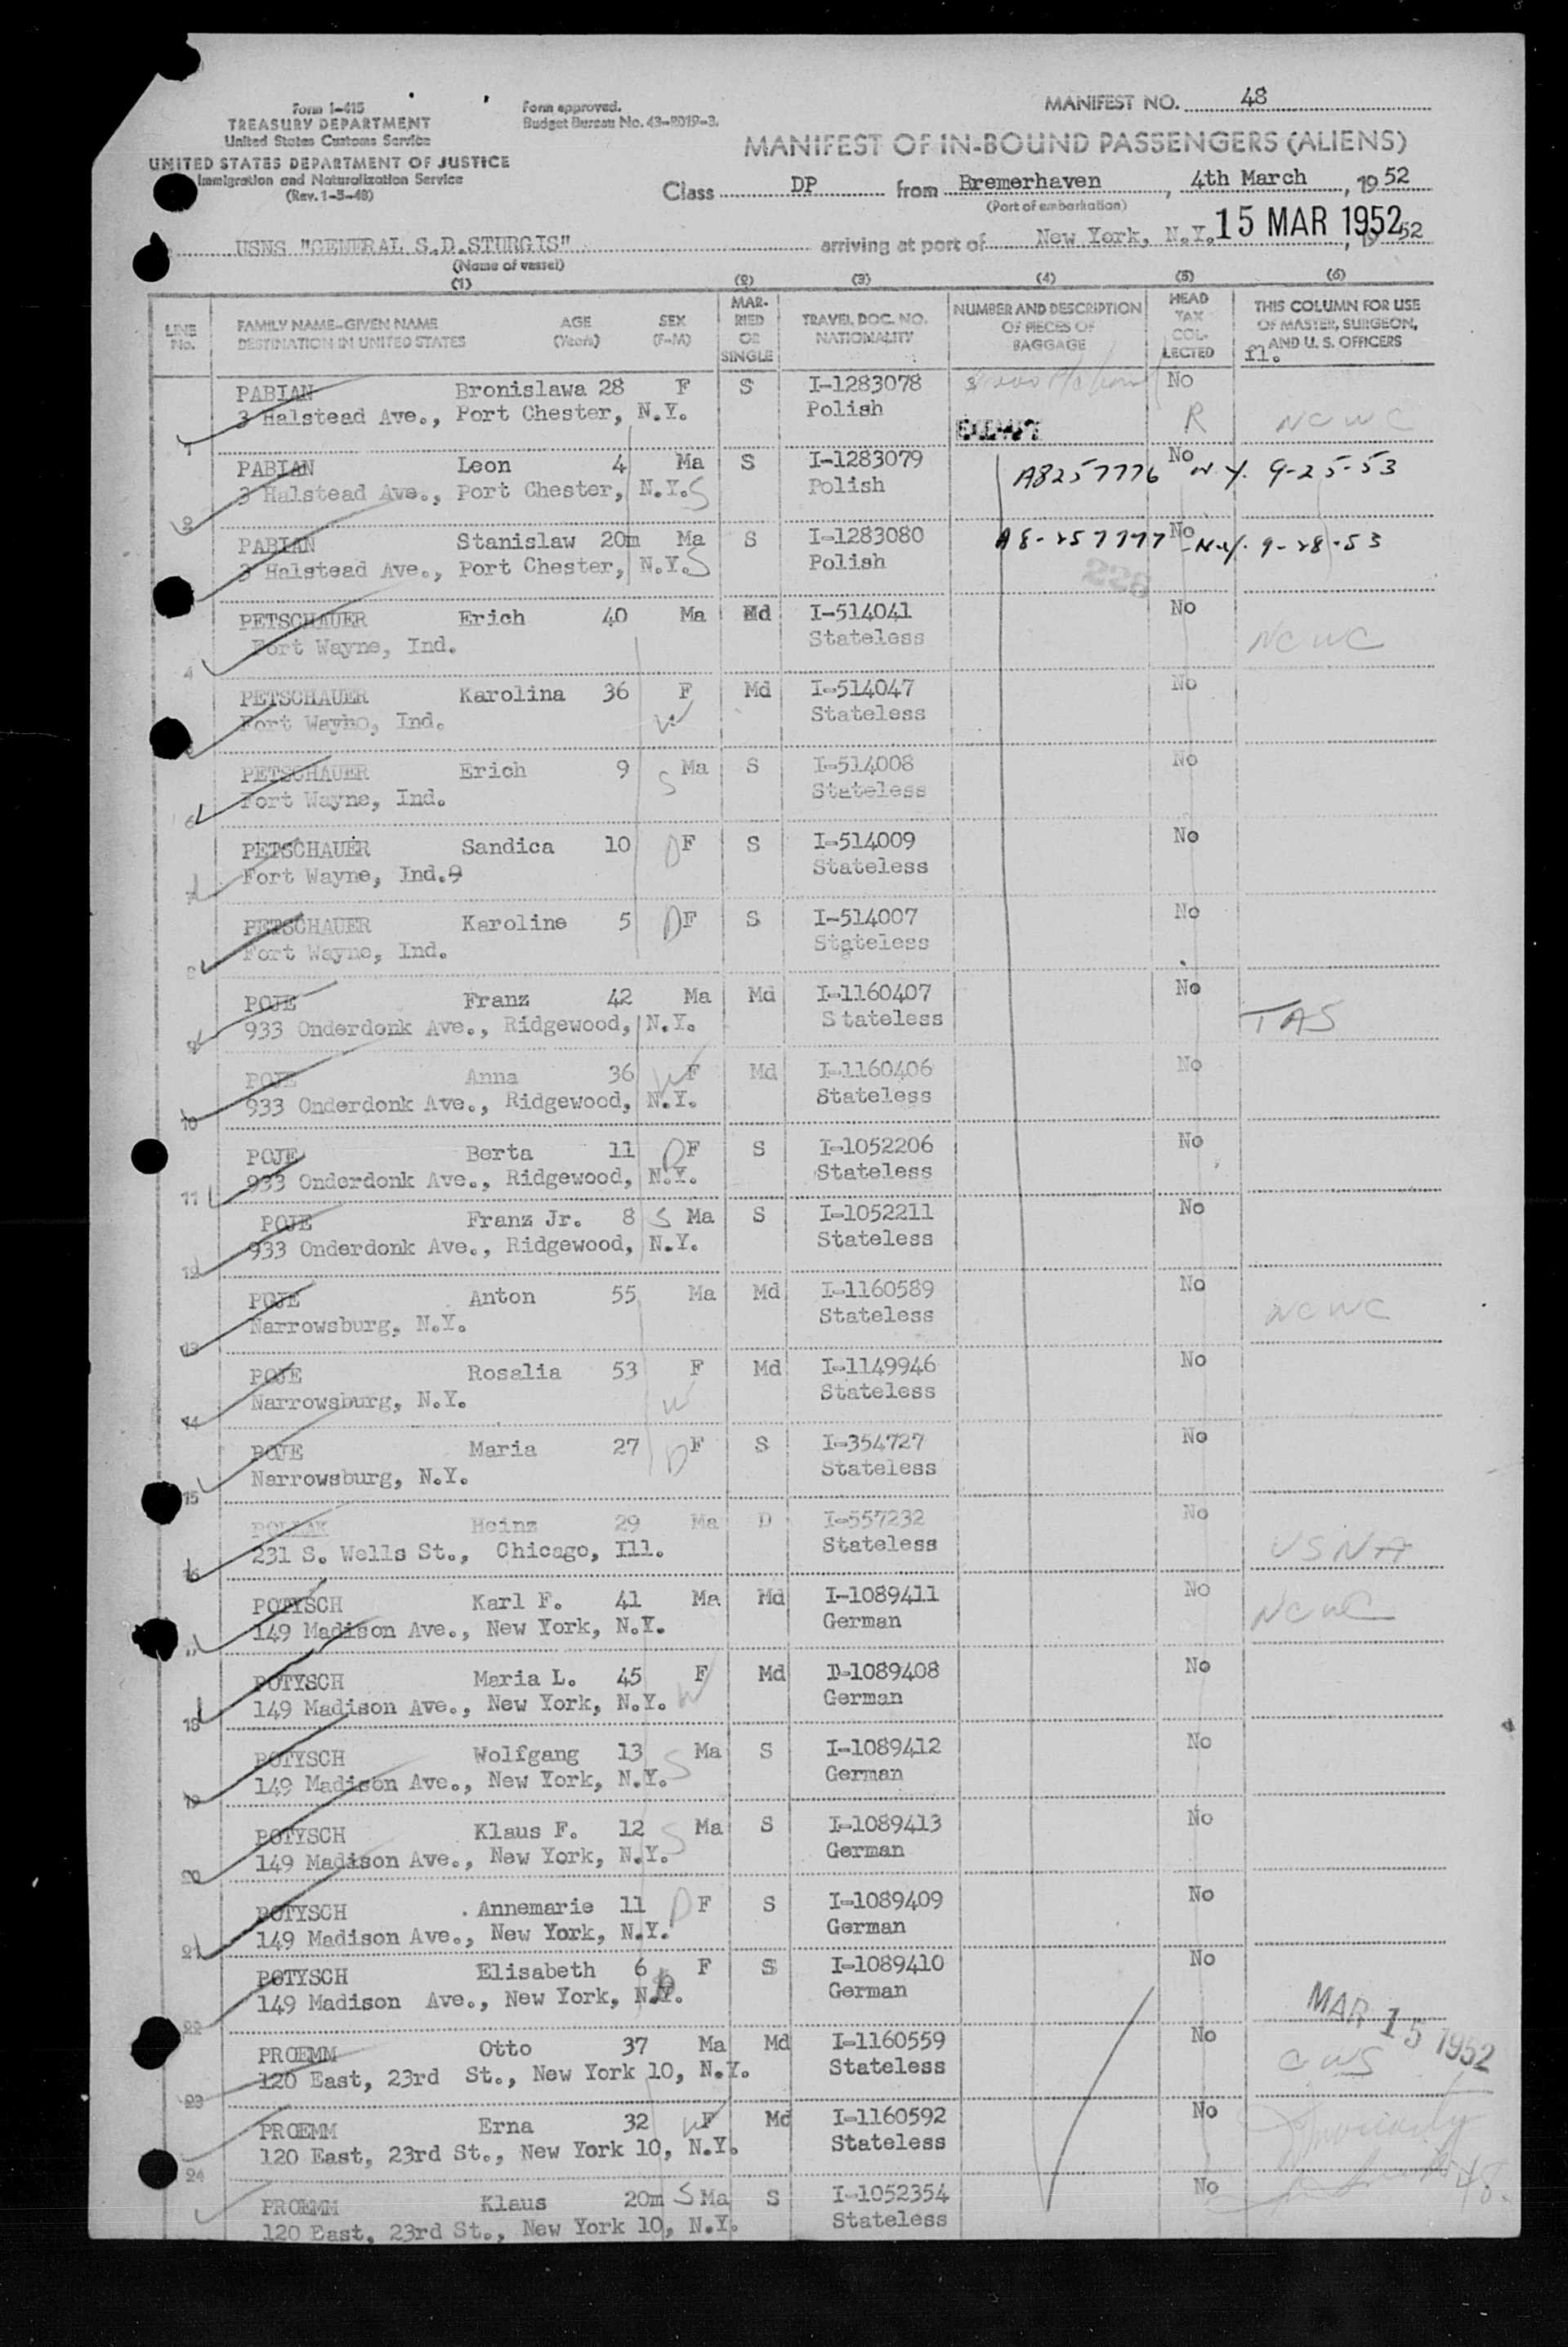 Form I-415
TREASURY DEPARTMENT
United States Customs Service
UNITED STATES DEPARTMENT OF JUSTICE
Immigration and Naturalization Service
(Rev. 1-5-48)
Form approved.
Budget Bureau No. 43-R019-3.
MANIFEST NO. 48
MANIFEST OF IN-BOUND PASSENGERS (ALIENS)
Class DP from Bremerhaven, 4th March, 1952
(Port of embarkation)
USNS "GENERAL S.D.STURGIS" arriving at port of New York, N.Y. 15 MAR 1952, 1952
(Name of vessel)
(1) (2) (3) (4) (5) (6)
LINE No. FAMILY NAME-GIVEN NAME DESTINATION IN UNITED STATES AGE (Years) SEX (F-M) MARRIED OR SINGLE TRAVEL DOC. NO. NATIONALITY NUMBER AND DESCRIPTION OF PIECES OF BAGGAGE HEAD TAX COLLECTED THIS COLUMN FOR USE OF MASTER, SURGEON, AND U. S. OFFICERS
fl.
PABIAN Bronislawa 28 F S I-1283078 No
3 Halstead Ave., Port Chester, N.Y. Polish EXEMPT R NCWC
1
PABIAN Leon 4 Ma S I-1283079 No
3 Halstead Ave., Port Chester, N.Y. S Polish A8257776 N.Y. 9-25-53
2
PABIAN Stanislaw 20m Ma S I-1283080 No
3 Halstead Ave., Port Chester, N.Y. S Polish A8-257777 - N.Y. 9-28-53
228
PETSCHAUER Erich 40 Ma Md I-514041 No
Fort Wayne, Ind. Stateless NCWC
4
PETSCHAUER Karolina 36 F Md I-514047 No
Fort Wayne, Ind. W Stateless
PETSCHAUER Erich 9 S Ma S I-514008 No
Fort Wayne, Ind. Stateless
6
PETSCHAUER Sandica 10 D F S I-514009 No
Fort Wayne, Ind.9 Stateless
7
PETSCHAUER Karoline 5 D F S I-514007 No
Fort Wayne, Ind. Stateless
8
POJE Franz 42 Ma Md I-1160407 No
933 Onderdonk Ave., Ridgewood, N.Y. Stateless TAS
9
POJE Anna 36 W F Md I-1160406 No
933 Onderdonk Ave., Ridgewood, N.Y. Stateless
10
POJE Berta 11 D F S I-1052206 No
933 Onderdonk Ave., Ridgewood, N.Y. Stateless
11
POJE Franz Jr. 8 S Ma S I-1052211 No
933 Onderdonk Ave., Ridgewood, N.Y. Stateless
12
POJE Anton 55 Ma Md I-1160589 No
Narrowsburg, N.Y. Stateless NCWC
13
POJE Rosalia 53 F Md I-1149946 No
Narrowsburg, N.Y. W Stateless
14
POJE Maria 27 D F S I-354727 No
Narrowsburg, N.Y. Stateless
15
POLLAK Heinz 29 Ma D I-557232 No
231 S. Wells St., Chicago, Ill. Stateless USNA
16
POTYSCH Karl F. 41 Ma Md I-1089411 No
149 Madison Ave., New York, N.Y. German NCWC
17
POTYSCH Maria L. 45 F Md I-1089408 No
149 Madison Ave., New York, N.Y. W German
18
POTYSCH Wolfgang 13 Ma S I-1089412 No
149 Madison Ave., New York, N.Y. S German
19
POTYSCH Klaus F. 12 Ma S I-1089413 No
149 Madison Ave., New York, N.Y. S German
20
POTYSCH Annemarie 11 D F S I-1089409 No
149 Madison Ave., New York, N.Y. German
21
POTYSCH Elisabeth 6 F S I-1089410 No
149 Madison Ave., New York, N.Y. D German
22
MAR 15 1952
PROEMM Otto 37 Ma Md I-1160559 No
120 East, 23rd St., New York 10, N.Y. Stateless CWS
23
PROEMM Erna 32 W F Md I-1160592 No
120 East, 23rd St., New York 10, N.Y. Stateless
24
PROEMM Klaus 20m S Ma S I-1052354 No
120 East, 23rd St., New York 10, N.Y. Stateless
48.